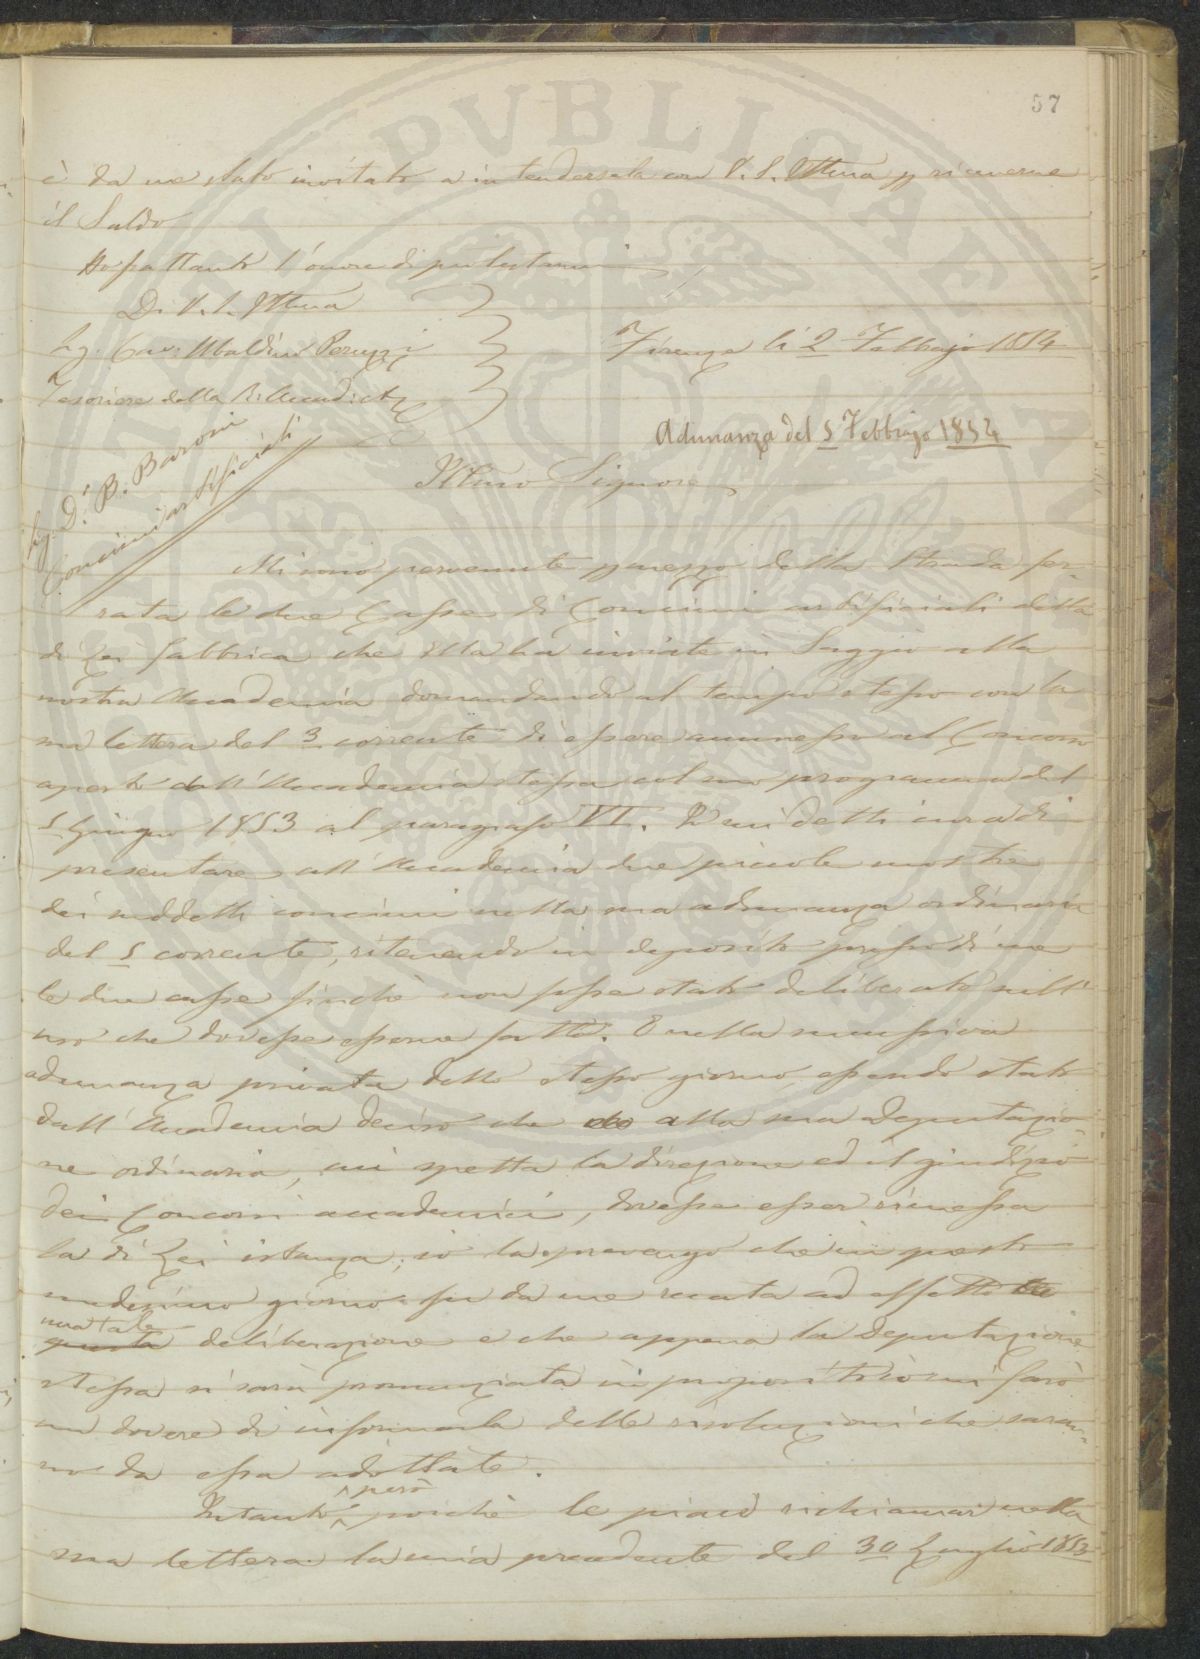 57
è da me stato invitato a intendersela con V. S. Illma p riceverne
il Saldo
Ho pattanto l'onore di protestarmi
Di V. S. Illma
Sig. Cav: Ubaldino Peruzzi
Tesoriere della R. Accad:
Firenze li 2 Febbrajo 1854
Adunanza del 5 Febbrajo 1854
Sig. Dr. B. Baroni
Concimi artificiali
Illmo Signore
Mi sono pervenute p mezzo della Strada fer-
rata le due Casse di Concimi artificiali della
di Lei fabbrica che Ella ha inviate in Saggio alla
nostra Accademia domandando al tempo stesso con la
sua lettera del 3 corrente di essere ammesso al Concorso
aperto dall'Accademia stessa col suo programma del
5 Giugno 1853 al paragrafo VI. Io mi detti cura di
presentare all'Accademia due piccole mostre
dei suddetti concimi nella sua adunanza ordinaria
del 5 corrente, ritenendo in deposito presso di me
le due casse finchè non fosse stato deliberato sull'
uso che dovesse esserne fatto. E nella successiva
adunanza privata dello stesso giorno, essendo stato
dall'Accademia deciso che alla sua Deputazio-
ne ordinaria, cui spetta la direzione ed il giudizio
dei Concorsi accademici, dovesse esser rimessa
la di Lei istanza, io la prevengo che in questo
medesimo giorno fu da me recata ad effetto
una tale
questa deliberazione e che appena la Deputazione
stessa si sarà pronunziata in proposito io mi farò
un dovere di informarla delle risoluzioni che saran-
no da essa adottate.
però
Intanto poichè le piace richiamar nella
sua lettera la mia precedente del 30 Luglio 1853